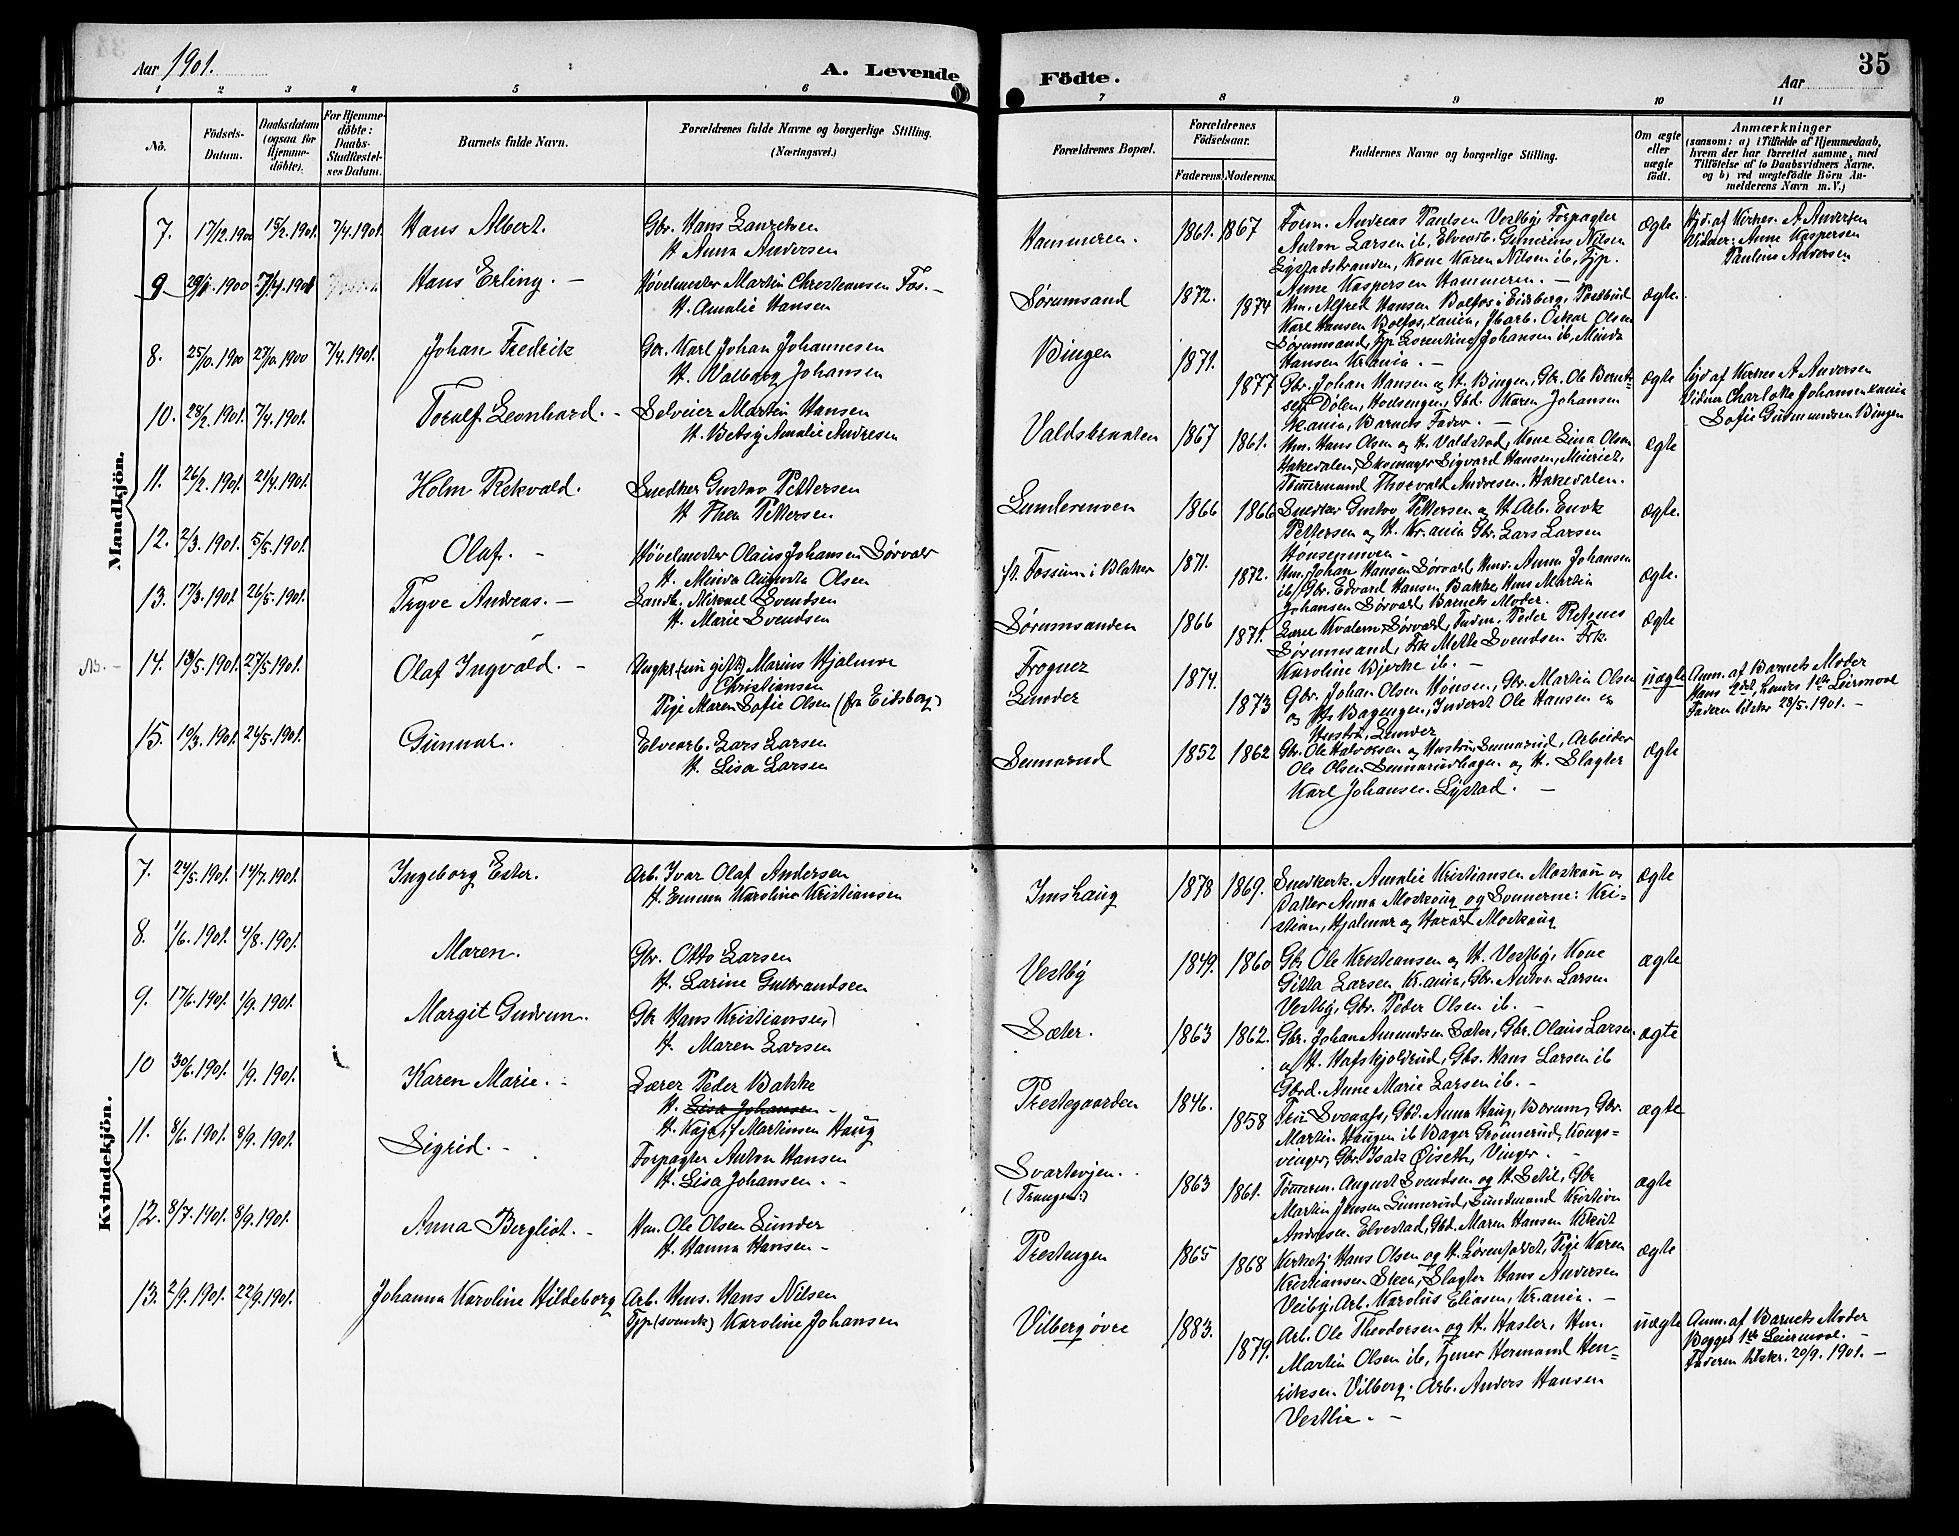 Aar 1901.
A. Levende
Födte.
Aar
35
1 2 3 4 5 6 7 8 9 10 11
No.
Födsels-
Datum.
Daabsdatum
(ogsaa for
Hjemme-
döbte).
For Hjemme-
döbte:
Daabs-
Stadfæstel-
ses Datum.
Barnets fulde Navn.
Forældrenes fulde Navne og borgerlige Stilling.
(Næringsvei.)
Forældrenes Bopæl.
Forældrenes
Födselsaar.
Faderens.
Moderens.
Faddernes Navne og borgerlige Stilling.
Om ægte
eller
uægte
födt.
Anmærkninger
(saasom: a) i Tilfælde af Hjemmedaab,
hvem der har forrettet samme, med
Tilföielse af to Daabsvidners Navne,
og b) ved uægtefödte Börn An-
melderens Navn m. V.)
Mandkjön.
7. 17/12.1900 15/2.1901. 7/4.1901. Hans Albert.
Gbr. Hans Lauritsen
H. Anna Andersen
Hammeren.
1861. 1867
Form. Andreas Paulsen Vestby, Forpagter
Anton Larsen ib, Elvearb. Gunerius Nilsen
Lystadstranden, Kone Karen Nilsen ib, Tjp.
Anne Kaspersen Hammeren. -
Ægte
Hjd. af Kirkes. A Andersen
Vidner: Anne Kaspersen
Pauline Andersen
9 1900 1901 Hans Erling. -
Høvelmester Martin Christiansen Fos. -
H. Amalie Hansen
Sørumsand
1872. 1874
Hm. Alfred Hansen Bolfos i Eidsberg, Postbud
Karl Hansen Bolfos, Kania, Jbarb. Oskar Olsen
Sørumsand, Tjp Lorentine Johansen ib, Minda
Hansen Krania. -
Ægte.
8. 25/10.1900 27/10.1900 7/4.1901. Johan Fredrik
Gbr. Karl Johan Johannesen
H. Valborg Johansen
Bingen
1871. 1877
Gbr. Johan Hansen og H. Bingen, Gbr. Ole Bernt-
sen Dølen, Gbd. Karen Johansen
Krania, Barnets Fader. -
Ægte
Hjd. af Kirkes A Andersen
Vidner Charlotte Johansen Kania
Sofie Gudmundsen Bingen
10. 28/2.1901. 7/4.1901. Toralf Leonhard. -
Selveier Martin Hansen
H. Betsy Amalie Andresen
Valdsbraaten
1867 1861.
Hm. Hans Olsen og H. Valdstad, Kone Lina Olsen
Hakedalen, Skomager Sigvard Hansen,
Tømmermand Thorvald Andresen, Hakedalen.
Ægte
11. 26/2.1901. 21/4.1901. Holm Rekvald.
Snedker Gustav Pettersen
H. Thea Pettersen
Lundermoen
1866 1866
Snedker Gustav Pettersen og H. Arb. Enok
Pettersen og H. Krania Gbr. Lars Larsen
Hønsenmoen -
Ægte.
12. 2/3.1901. 5/5.1901. Olaf. -
Høvelmester Olaus Johansen Sørvald
H. Minda Augusta Olsen
Fossum i Blaker
1871. 1872.
Hm. Johan Hansen Sørvald, Hmd. Anna Johansen
ib, Gbr. Edvard Hansen Bakke Hms Martin
Johansen Sørvald, Barnets Moder.
Ægte.
13. 17/3.1901 26/5.1901. Trygve Andreas. -
Landh. Mikael Svendsen
H. Marie Svendsen
Sørumsanden
1866 1871.
Lærer Kvalem, Sørvald, Fuldm. Peder Refsnes
Sørumsand, Frk Mette Svendsen Frk.
Karoline Bjerke ib. -
Ægte
NB. - 14. 13/5.1901. 27/5.1901. Olaf Ingvald. -
Ungkr. (nu gift) Marius Hjalmar
Christiansen
Pige Maren Sofie Olsen (fra Eidsberg)
Frogner
Lunder
1874. 1873
Gbr. Johan Olsen Hønsen, Gbr. Martin Olsen
og H. Bagengen, Inderst Ole Hansen og
Hustru, Lunder
uægte
Anm. af Barnets Moder
Hans 2det, hendes 1ste Leiermaal
Faderen tilskr 28/5.1901. -
15. 19/3.1901. 24/5.1901. Gunnar.
Elvearb. Lars Larsen
H. Lisa Larsen
Sennerud
1852 1862
Gbr. Ole Halvorsen og Hustru Sennerud, Arbeider
Ole Olsen Sennerudhagen og H. Slagter
Karl Johansen Lystad. -
Ægte
Kvindekjön.
7. 24/5.1901. 14/7.1901. Ingeborg Ester.
Arb. Ivar Olaf Andersen
H. Emma Karoline Kristiansen
Imshaug
1878 1869.
Snedkerk. Amalie Kristiansen Moskaug og
Datter Anna Moskaug og Sønnerne: Kri-
stian, Hjalmar og Harald Moskaug
Ægte
8. 1/6.1901. 4/8.1901. Maren.
Gbr. Otto Larsen
H. Larine Gulbrandsen
Vestby
1849. 1860
Gbr Ole Kristiansen og H. Vestby, Kone
Gitta Larsen Krania, Gbr. Anton Larsen
Vestby, Gbr. Peder Olsen ib. -
ægte
9. 17/6.1901. 1/9.1901. Margit Gudrun.
Gbr Hans Kristiansen,
H. Maren Larsen
Sæter.
1863 1862.
Gbr. Johan Amundsen Sæter, Gbr. Olaus Larsen
og H. Hafskjoldrud, Gbs. Hans Larsen ib
Gbrd. Anne Marie Larsen ib. -
ægte
10 30/6.1901. 1/9.1901. Karen Marie. -
Lærer Peder Bakke
H. Lisa Johansen -
H. Kaja Martinsen Haug
Prestegaarden
1846. 1858
Fru Gbd. Anna Haug, Borum, Gbr.
Martin Haugen ib Bager Grønnerud, Kongs-
vinger, Gbr. Isak Øiseth, Vinger. -
ægte
11. 8/6.1901. 8/9.1901. Sigrid. -
Forpagter Anton Hansen
H. Lisa Johansen. -
Svartevjen.
(Trangen.)
1863 1861.
Tømerm. August Svendsen og H. Setil, Gbr
Martin Jensen Linnerud, Sundmand Kristian
Andresen Elvestad, Gbd. Maren Hansen
ægte
12. 8/7.1901. 8/9.1901. Anna Bergliot. -
Hm. Ole Olsen Lunder
H. Hanna Hansen -
Prestengen
1865 1868
Kirketj Hans Olsen og H. Sørenfaldet, Pige Karen
Kristiansen Steen, Slagter Hans Andersen
Veiby, Arb. Karolus Eliasen, Krania. -
ægte
13. 2/9.1901. 22/9.1901. Johanna Karoline Hildeborg
Arb. Hms. Hans Nilsen
Tjp (svensk) Karoline Johansen
Vilberg øvre
1883. 1879.
Arb. Ole Theodorsen og H. Hasler, Hm.
Martin Olsen ib, Tjener Hermand Hen-
riksen Vilberg. Arb. Anders Hansen
Vestlie. -
uægte
Anm. af Barnets Moder
Begges 1ste Leiermaal. -
Faderen tilskr. 20/9.1901. -